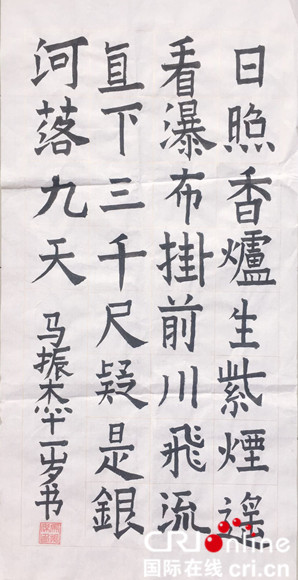 日照香爐生紫煙遥
看瀑布掛前川飛流
直下三千尺疑是銀
河落九天
马振杰十一岁书
CRIonline
国际在线 cri.cn